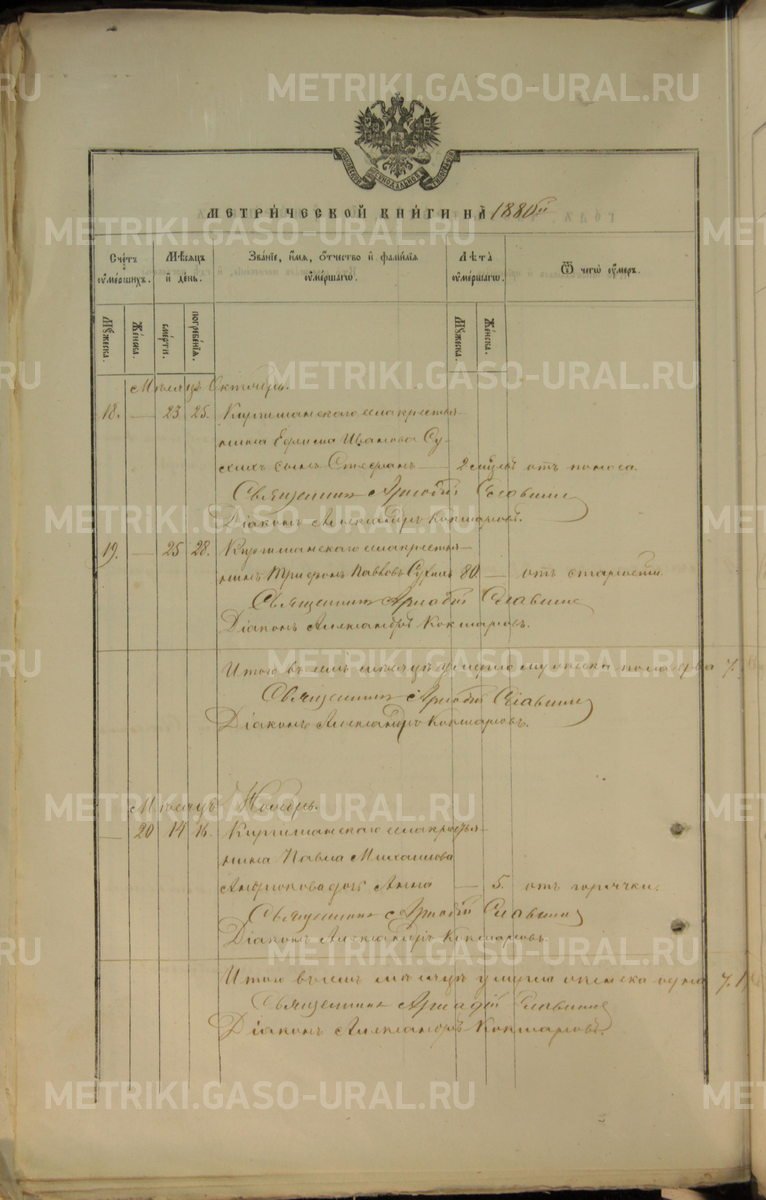 METRIKI.GASO-URAL.RU
МОСКОВСКОЙ СИНОДАЛЬНОЙ ТИПОГРАФІИ
МЕТРИЧЕСКОЙ КНИГИ НА 1880й
Счетъ умершихъ.
Мѣсяцъ и день.
Званіе, имя, отчество и фамилія умершаго.
Лѣта умершаго
Отъ чего умеръ.
Мужеска.
Женска.
смерти.
погребенія.
Мужеска.
Женска.
Мѣсяцъ Октябрь.
18. — 23 25. Киргишанскаго села крестья-
нина Ефима Иванова Су-
хихъ сынъ Стефанъ — 2 отъ поноса.
Священникъ Аркадій Славнинъ
Діаконъ Александръ Кокшаровъ.
19. — 25 28. Киргишанскаго села крестья-
нинъ Трифонъ Павловъ Сухихъ 80 — отъ старости
Священникъ Аркадій Славнинъ
Діаконъ Александръ Кокшаровъ.
Итого въ семъ мѣсяцѣ умерло мужеска пола два ч.
Священникъ Аркадій Славнинъ
Діаконъ Александръ Кокшаровъ.
Мѣсяцъ Ноябрь.
— 20 14 16. Киргишанскаго села крестья-
нина Павла Михаилова
дочь Анна — 5. отъ горячки.
Священникъ Аркадій Славнинъ
Діаконъ Александръ Кокшаровъ.
Итого въ семъ мѣсяцѣ умерла женска одна ч. 1
Священникъ Аркадій Славнинъ
Діаконъ Александръ Кокшаровъ.